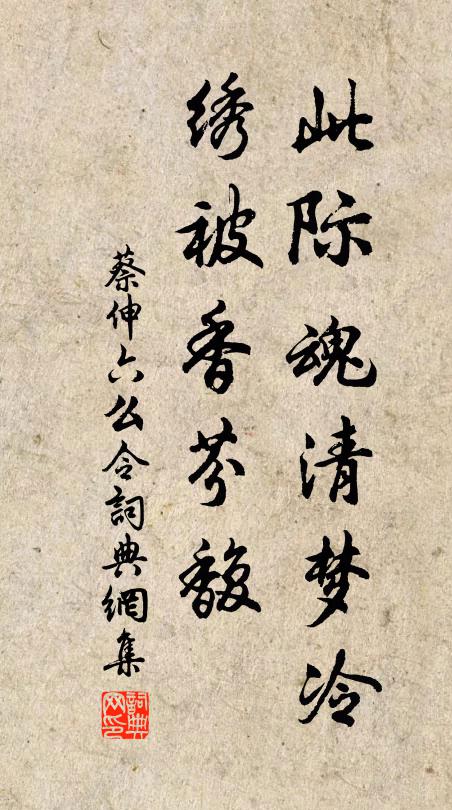 此际魂清梦冷
绣被香芬馥
蔡伸六么令詞典網集
詞典网印